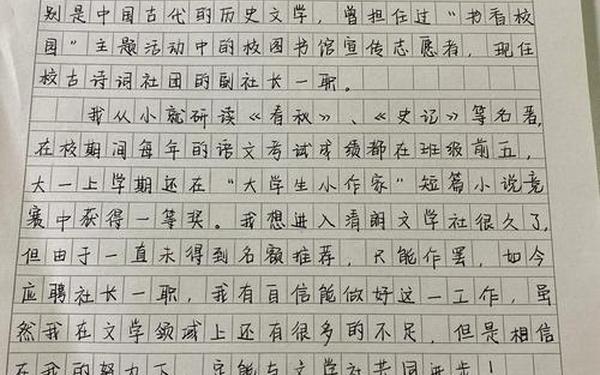 别是中国古代的历史文学，曾担任过“书香校
园”主题活动中的校图书馆宣传志愿者，现任
校古诗词社团的副社长一职。
我从小就研读《春秋》、《史记》等名著，
在校期间每年的语文考试成绩都在班级前五，
大一上学期还在“大学生小作家”短篇小说竞
赛中获得一等奖。我想进入清朗文学社很久了，
但由于一直未得到名额推荐，只能作罢，如今
应聘社长一职，我有自信能做好这一工作，虽
然我在文学领域上还有很多的不足，但是相信
在我的努力下，一定能与文学社共同进步！